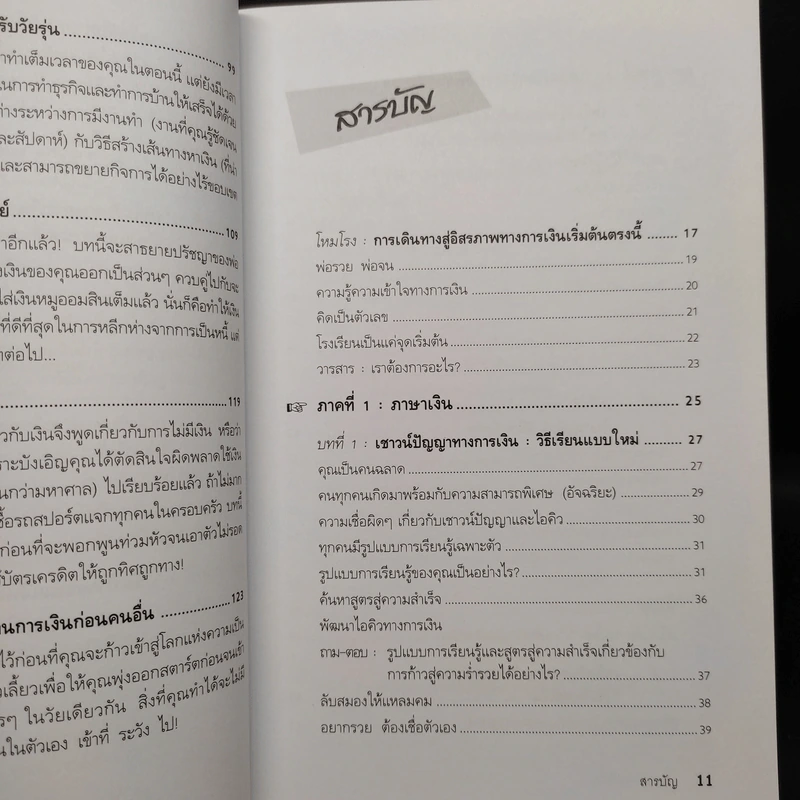 รับวัยรุ่น .......... 99
าทำเต็มเวลาของคุณในตอนนี้ แต่ยังมีเวลา
ในการทำธุรกิจและทำการบ้านให้เสร็จได้ด้วย
่างระหว่างการมีงานทำ (งานที่คุณรู้ชัดเจน
ละสัปดาห์) กับวิธีสร้างเส้นทางหาเงิน (ที่น่า
และสามารถขยายกิจการได้อย่างไร้ขอบเขต
ย์ .......... 109
าอีกแล้ว! บทนี้จะสาธยายปรัชญาของพ่อ
งเงินของคุณออกเป็นส่วนๆ ควบคู่ไปกับจะ
ใส่เงินหมูออมสินเต็มแล้ว นั่นก็คือทำให้เงิน
ที่ดีที่สุดในการหลีกห่างจากการเป็นหนี้ แต่
าต่อไป...
.......... 119
วกับเงินจึงพูดเกี่ยวกับการไม่มีเงิน หรือว่า
ราะบังเอิญคุณได้ตัดสินใจผิดพลาดใช้เงิน
นกว่ามหาศาล) ไปเรียบร้อยแล้ว ถ้าไม่มาก
ซื้อรถสปอร์ตแจกทุกคนในครอบครัว บทนี้
ก่อนที่จะพอกพูนท่วมหัวจนเอาตัวไม่รอด
้บัตรเครดิตให้ถูกทิศถูกทาง!
านการเงินก่อนคนอื่น .......... 123
ไว้ก่อนที่คุณจะก้าวเข้าสู่โลกแห่งความเป็น
วเลี้ยวเพื่อให้คุณพุ่งออกสตาร์ตก่อนจนเข้า
รๆ ในวัยเดียวกัน สิ่งที่คุณทำได้จะไม่มี
นในตัวเอง เข้าที่ ระวัง ไป!
สารบัญ
โหมโรง : การเดินทางสู่อิสรภาพทางการเงินเริ่มต้นตรงนี้ ........ 17
พ่อรวย พ่อจน .......... 19
ความรู้ความเข้าใจทางการเงิน .......... 20
คิดเป็นตัวเลข .......... 21
โรงเรียนเป็นแค่จุดเริ่มต้น .......... 22
วารสาร : เราต้องการอะไร? .......... 23
☞ ภาคที่ 1 : ภาษาเงิน .......... 25
บทที่ 1 : เชาวน์ปัญญาทางการเงิน : วิธีเรียนแบบใหม่ .......... 27
คุณเป็นคนฉลาด .......... 27
คนทุกคนเกิดมาพร้อมกับความสามารถพิเศษ (อัจฉริยะ) .......... 29
ความเชื่อผิดๆ เกี่ยวกับเชาวน์ปัญญาและไอคิว .......... 30
ทุกคนมีรูปแบบการเรียนรู้เฉพาะตัว .......... 31
รูปแบบการเรียนรู้ของคุณเป็นอย่างไร? .......... 31
ค้นหาสูตรสู่ความสำเร็จ .......... 36
พัฒนาไอคิวทางการเงิน
ถาม-ตอบ : รูปแบบการเรียนรู้และสูตรสู่ความสำเร็จเกี่ยวข้องกับ
การก้าวสู่ความร่ำรวยได้อย่างไร? .......... 37
ลับสมองให้แหลมคม .......... 38
อยากรวย ต้องเชื่อตัวเอง .......... 39
สารบัญ 11